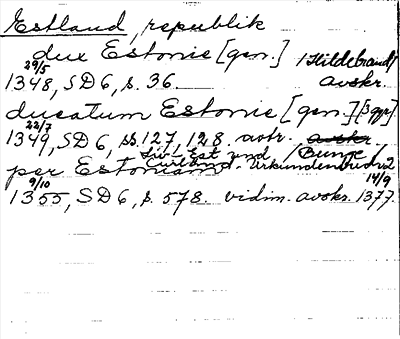 Estland, republik
dux Estonie [gen.] /Hildebrand/
29/5
1348, SD 6, s. 36. avskr.
ducatum Estonie [gen.] [3 ggr]
22/7
1349, SD 6, ss. 127, 128. avtr. avskr.
Liv-, Est- und /Bunge/
Curland. Urkundenbuch 2
per Estoniam
9/10 14/9
1355, SD 6, s. 578. vidim. avskr. 1377.